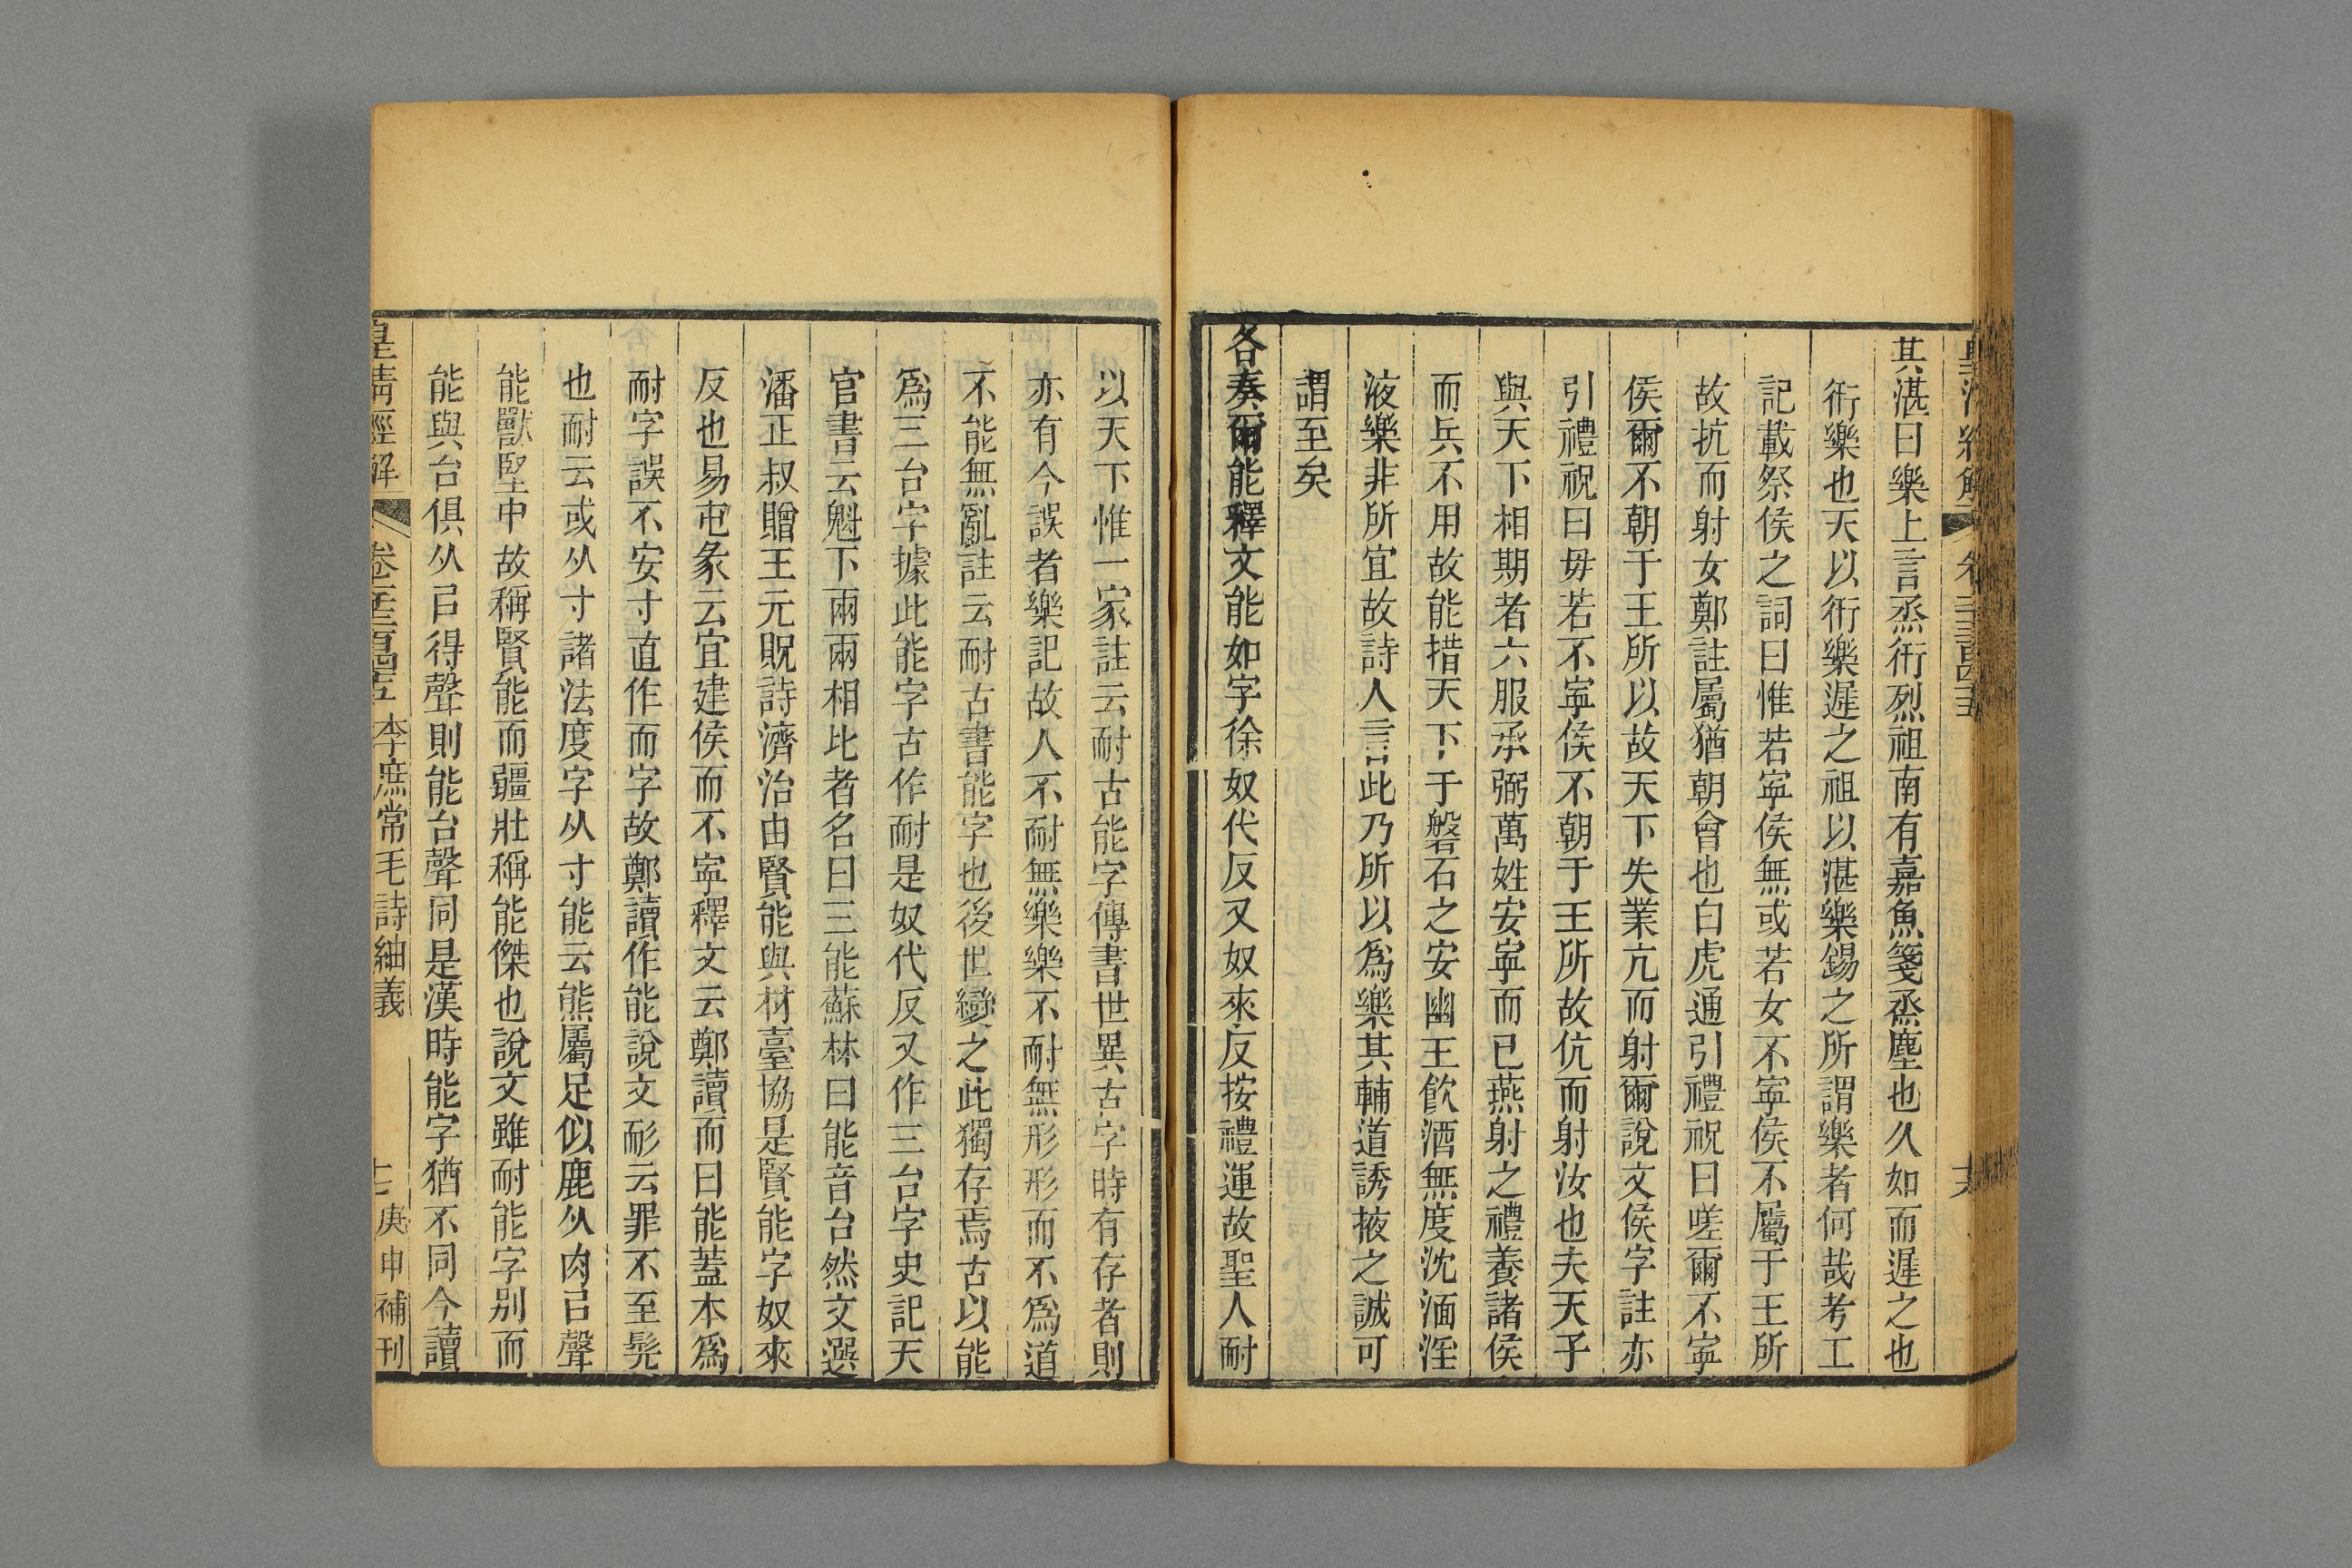 其湛曰樂上言烝衎烈祖南有嘉魚箋烝塵也久如而遲之也
衎樂也天以衎樂遲之祖以湛樂錫之所謂樂者何哉考工
記載祭侯之詞曰惟若寧侯無或若女不寧侯不屬于王所
故抗而射女鄭註屬猶朝會也白虎通引禮祝曰嗟爾不寧
侯爾不朝于王所以故天下失業亢而射爾說文侯字註亦
引禮祝曰毋若不寧侯不朝于王所故伉而射汝也夫天子
與天下相期者六服承弼萬姓安寧而已燕射之禮養諸侯
而兵不用故能措天下于磐石之安幽王飲酒無度沈湎淫
液樂非所宜故詩人言此乃所以為樂其輔道誘掖之誠可
謂至矣
各奏爾能釋文能如字徐奴代反又奴來反按禮運故聖人耐
以天下惟一家註云耐古能字傳書世異古字時有存者則
亦有今誤者樂記故人不耐無樂樂不耐無形形而不為道
不能無亂註云耐古書能字也後世變之此獨存焉古以能
為三台字據此能字古作耐是奴代反又作三台字史記天
官書云魁下兩兩相比者名曰三能蘇林曰能音台然文選
潘正叔贈王元貺詩濟治由賢能與材臺協是賢能字奴來
反也易屯彖云宜建侯而不寧釋文云鄭讀而曰能蓋本為
耐字誤不安寸直作而字故鄭讀作能說文耏云罪不至髡
也耐云或从寸諸法度字从寸能云熊屬足似鹿从肉㠯聲
能獸堅中故稱賢能而彊壯稱能傑也說文雖耐能字別而
能與台俱从㠯得聲則能台聲同是漢時能字猶不同今讀
皇清經解 卷一千三百四十五 李庶常毛詩紬義 十七 庚申補刊